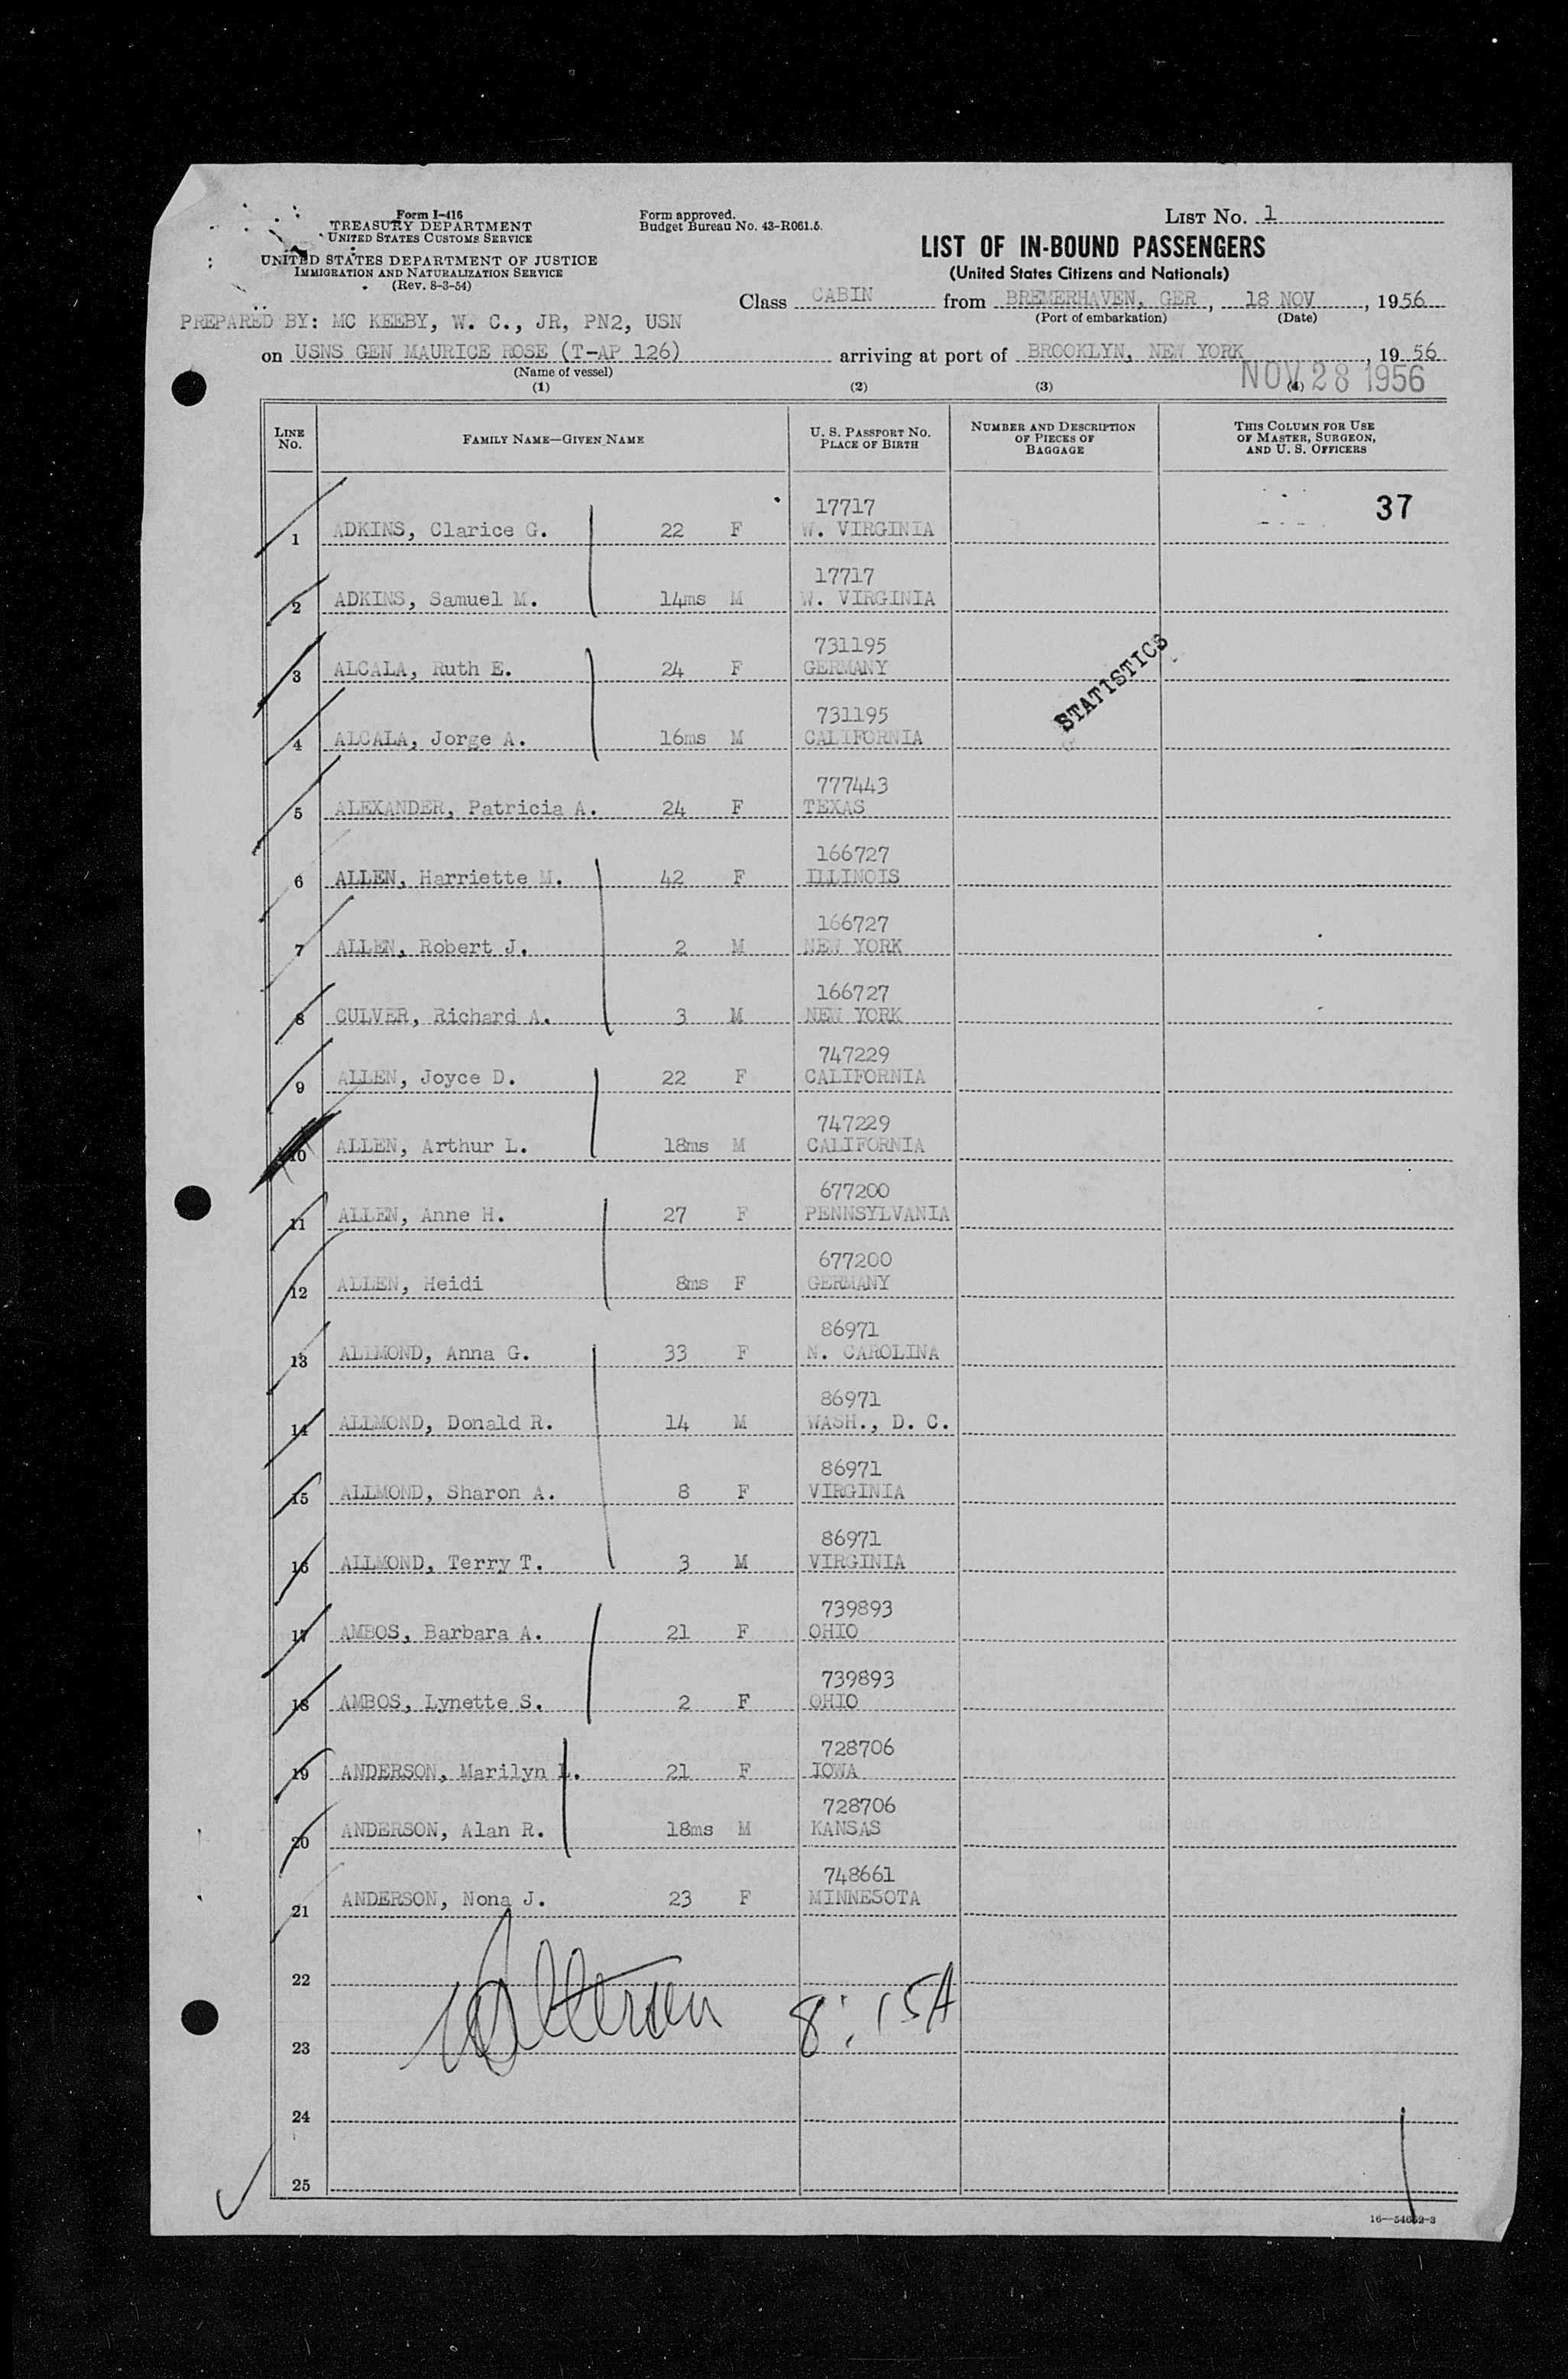 Form I-416
TREASURY DEPARTMENT
UNITED STATES CUSTOMS SERVICE
UNITED STATES DEPARTMENT OF JUSTICE
IMMIGRATION AND NATURALIZATION SERVICE
(Rev. 8-3-54)
Form approved.
Budget Bureau No. 43-R061.5.
LIST NO. 1
LIST OF IN-BOUND PASSENGERS
(United States Citizens and Nationals)
Class CABIN from BREMERHAVEN, GER, 18 NOV, 1956
(Port of embarkation) (Date)
PREPARED BY: MC KEEBY, W. C., JR, PN2, USN
on USNS GEN MAURICE ROSE (T-AP 126) arriving at port of BROOKLYN, NEW YORK, 1956
(Name of vessel)
NOV 28 1956
(1) (2) (3) (4)
LINE NO. FAMILY NAME—GIVEN NAME U. S. PASSPORT NO. PLACE OF BIRTH NUMBER AND DESCRIPTION OF PIECES OF BAGGAGE THIS COLUMN FOR USE OF MASTER, SURGEON, AND U. S. OFFICERS
17717 37
1 ADKINS, Clarice G. 22 F W. VIRGINIA
17717
2 ADKINS, Samuel M. 14ms M W. VIRGINIA
731195
3 ALCALA, Ruth E. 24 F GERMANY
STATISTICS
731195
4 ALCALA, Jorge A. 16ms M CALIFORNIA
777443
5 ALEXANDER, Patricia A. 24 F TEXAS
166727
6 ALLEN, Harriette M. 42 F ILLINOIS
166727
7 ALLEN, Robert J. 2 M NEW YORK
166727
8 CULVER, Richard A. 3 M NEW YORK
747229
9 ALLEN, Joyce D. 22 F CALIFORNIA
747229
10 ALLEN, Arthur L. 18ms M CALIFORNIA
677200
11 ALLEN, Anne H. 27 F PENNSYLVANIA
677200
12 ALLEN, Heidi 8ms F GERMANY
86971
13 ALLMOND, Anna G. 33 F N. CAROLINA
86971
14 ALLMOND, Donald R. 14 M WASH., D. C.
86971
15 ALLMOND, Sharon A. 8 F VIRGINIA
86971
16 ALLMOND, Terry T. 3 M VIRGINIA
739893
17 AMBOS, Barbara A. 21 F OHIO
739893
18 AMBOS, Lynette S. 2 F OHIO
728706
19 ANDERSON, Marilyn L. 21 F IOWA
728706
20 ANDERSON, Alan R. 18ms M KANSAS
748661
21 ANDERSON, Nona J. 23 F MINNESOTA
22
8:15A
23
24
25